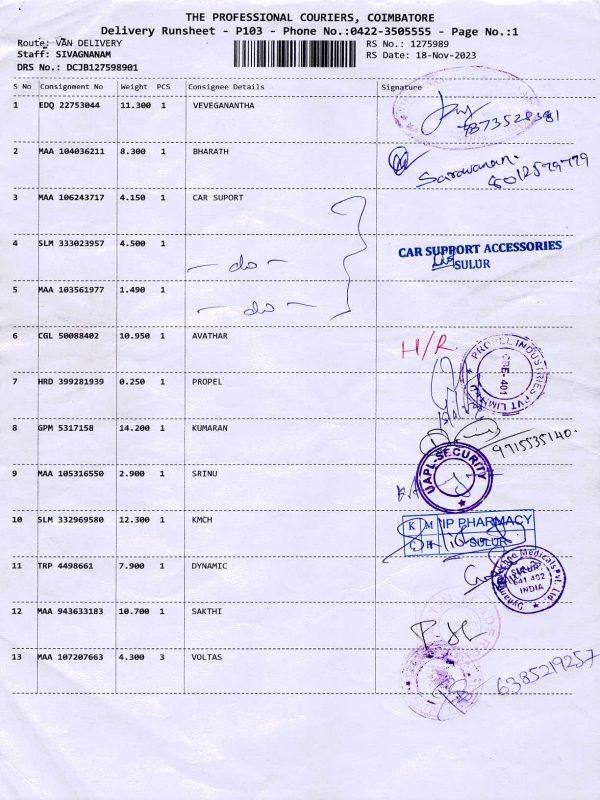 THE PROFESSIONAL COURIERS, COIMBATORE
Delivery Runsheet - P103 - Phone No.:0422-3505555 - Page No.:1
Route: VAN DELIVERY RS No.: 1275989
Staff: SIVAGNANAM RS Date: 18-Nov-2023
DRS No.: DCJB127598901
S No Consignment No Weight PCS Consignee Details Signature
1 EDQ 22753044 11.300 1 VEVEGANANTHA
9873528381
2 MAA 104036211 8.300 1 BHARATH
Saravanan.
8012579779
3 MAA 106243717 4.150 1 CAR SUPORT
4 SLM 333023957 4.500 1 - do - CAR SUPPORT ACCESSORIES
SULUR
5 MAA 103561977 1.490 1 - do -
6 CGL 50088402 10.950 1 AVATHAR H/R
PROPEL INDUSTRIES PVT LIMITED
CBE-401
7 HRD 399281939 0.250 1 PROPEL
8 GPM 5317158 14.200 1 KUMARAN
9715535140.
9 MAA 105316550 2.900 1 SRINU UAPL SECURITY
10 SLM 332969580 12.300 1 KMCH K M C H IP PHARMACY
SULUR
11 TRP 4498661 7.900 1 DYNAMIC
SULUR
641 402
INDIA
12 MAA 943633183 10.700 1 SAKTHI
13 MAA 107207663 4.300 3 VOLTAS 6385219257